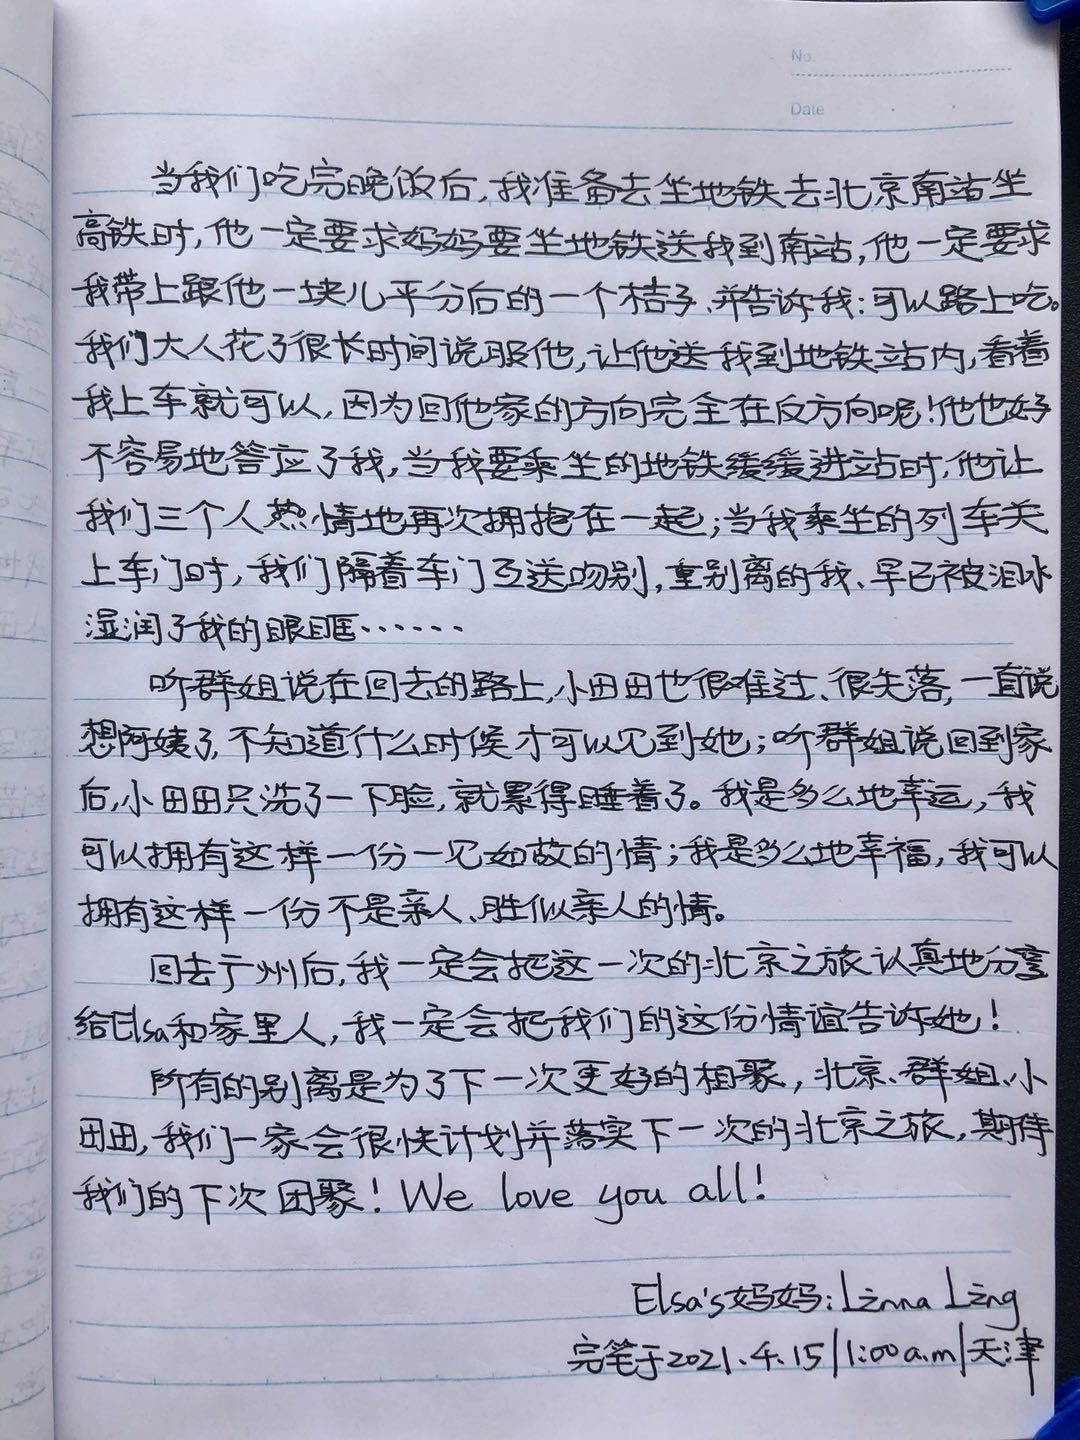 No.
Date
当我们吃完晚饭后,我准备去坐地铁去北京南站坐
高铁时,他一定要求妈妈要坐地铁送我到南站,他一定要求
我带上跟他一块儿平分后的一个桔子、并告诉我:可以路上吃。
我们大人花了很长时间说服他,让他送我到地铁站内,看着
我上车就可以,因为回他家的方向完全在反方向呢!他也好
不容易地答应了我,当我要乘坐的地铁缓缓进站时,他让
我们三个人热情地再次拥抱在一起;当我乘坐的列车关
上车门时,我们隔着车门互送吻别,重别离的我、早已被泪水
湿润了我的眼眶……
听群姐说在回去的路上,小田田也很难过、很失落,一直说
想阿姨了,不知道什么时候才可以见到她;听群姐说回到家
后,小田田只洗了一下脸,就累得睡着了。我是多么地幸运,我
可以拥有这样一份一见如故的情;我是多么地幸福,我可以
拥有这样一份不是亲人、胜似亲人的情。
回去广州后,我一定会把这一次的北京之旅认真地分享
给Elsa和家里人,我一定会把我们的这份情谊告诉她!
所有的别离是为了下一次更好的相聚,北京、群姐、小
田田,我们一家会很快计划并落实下一次的北京之旅,期待
我们的下次团聚!We love you all!
Elsa's妈妈:Linna Ling
完笔于2021.4.15/1:00a.m/天津